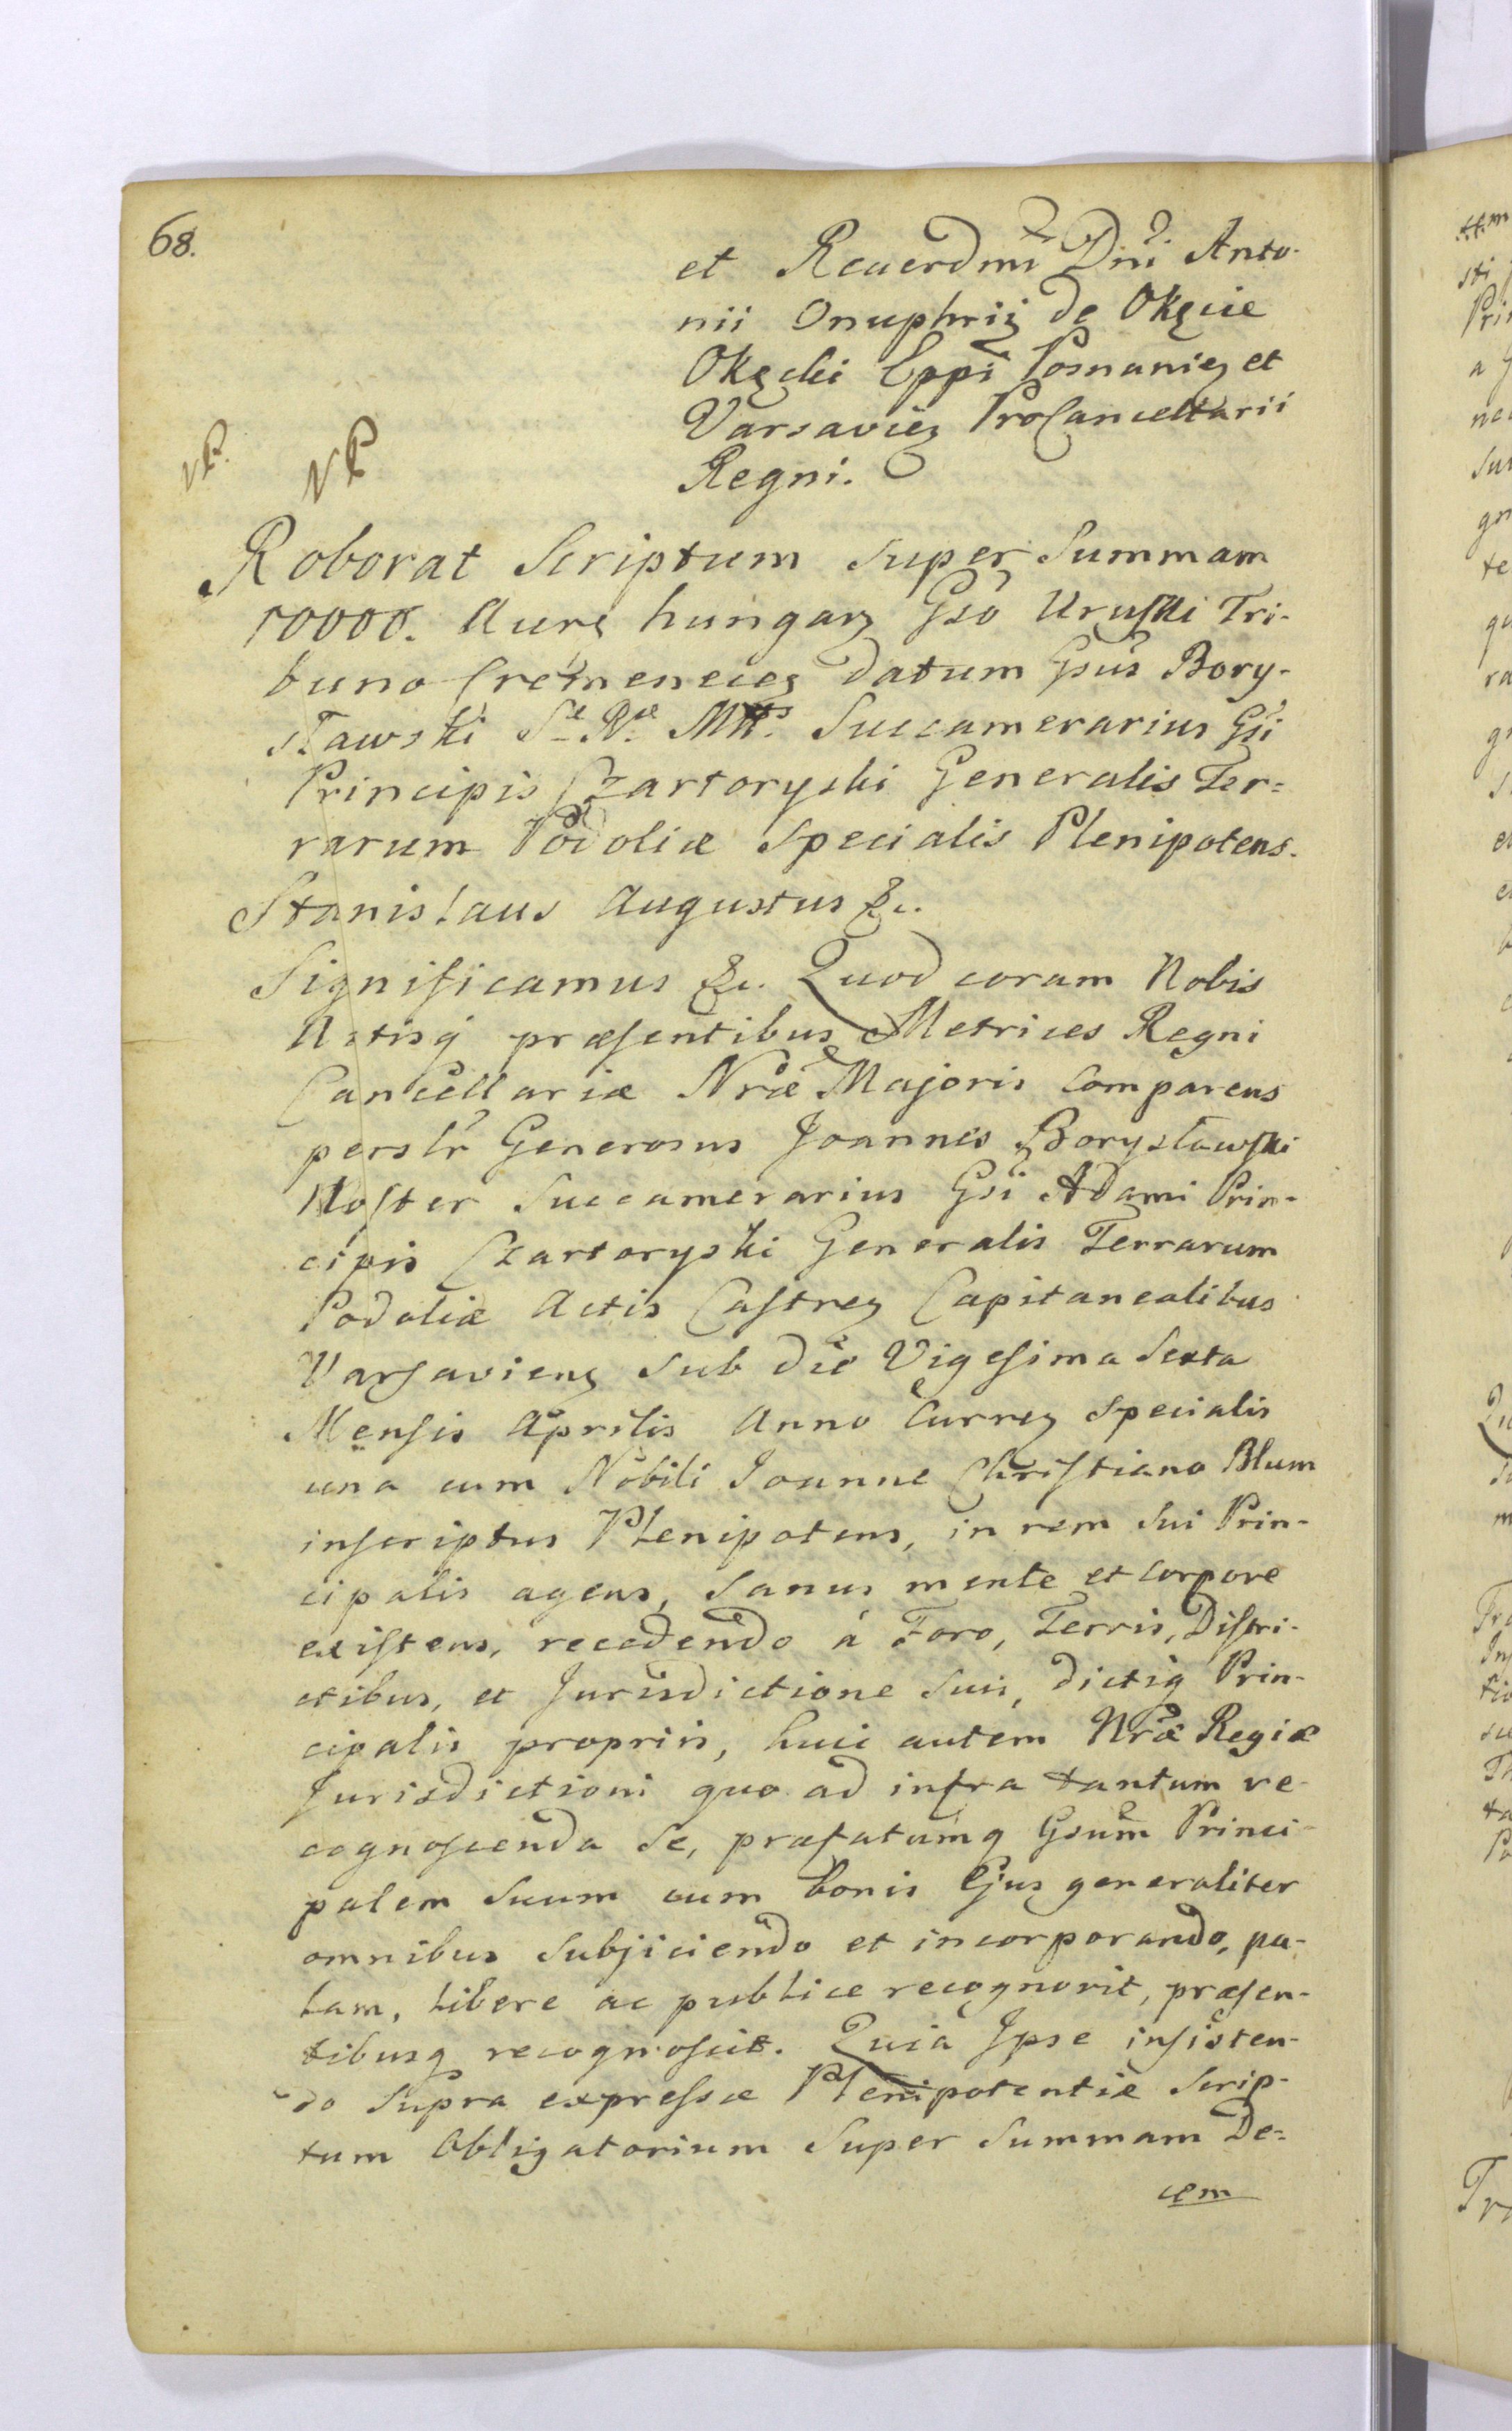 68.
et Reuerdmi Dni Anto-
nii Onuphrij de Okęcie
Okęcki Eppi Posnanieȝ et
Varsavieȝ ProCancellarii
Regni.
NP. NP
Roborat Scriptum super Summam
10000. Aureȝ hungarȝ Gso Uruski Tri-
buno Cremeneceȝ datum Gsus Bory-
sławski Sæ Ræ Mttis Succamerarius Gsi
Principis Czartoryski Generalis Ter=
rarum Podoliæ Specialis Plenipotens.
Stanislaus Augustus &c.
Significamus &c. Quod coram Nobis
Actisq præsentibus Metrices Regni
Cancellariæ Nræ Majoris Comparens
perslr Generosus Joannes Borysławski
Noster Succamerarius Gsi Adami Prin-
cipis Czartoryski Generalis Terrarum
Podoliæ Actis Castreȝ Capitanealibus
Varsavienȝ sub die Vigesima Sexta
Mensis Aprilis Anno Curreȝ Specialis
una cum Nobili Joanne Christiano Blum
inscriptus Plenipotens, in rem sui Prin-
cipalis agens, Sanus mente et corpore
existens, recedendo á Foro, Terris, Distri-
ctibus, et Jurisdictione suis, dictiq Prin-
cipalis propriis, huic autem Nræ Regiæ
Jurisdictioni quo ad infra tantum re-
cognoscenda se, præfatumq Gsum Princi-
palem suum cum bonis Ejus generaliter
omnibus Subjiciendo et incorporando, pa-
lam, libere ac publice recognovit, præsen-
tibusq recognoscit. Quia Ipse insisten-
do supra expressæ Plenipotentiæ Scrip-
tum Obligatorium Super Summam De=
cem